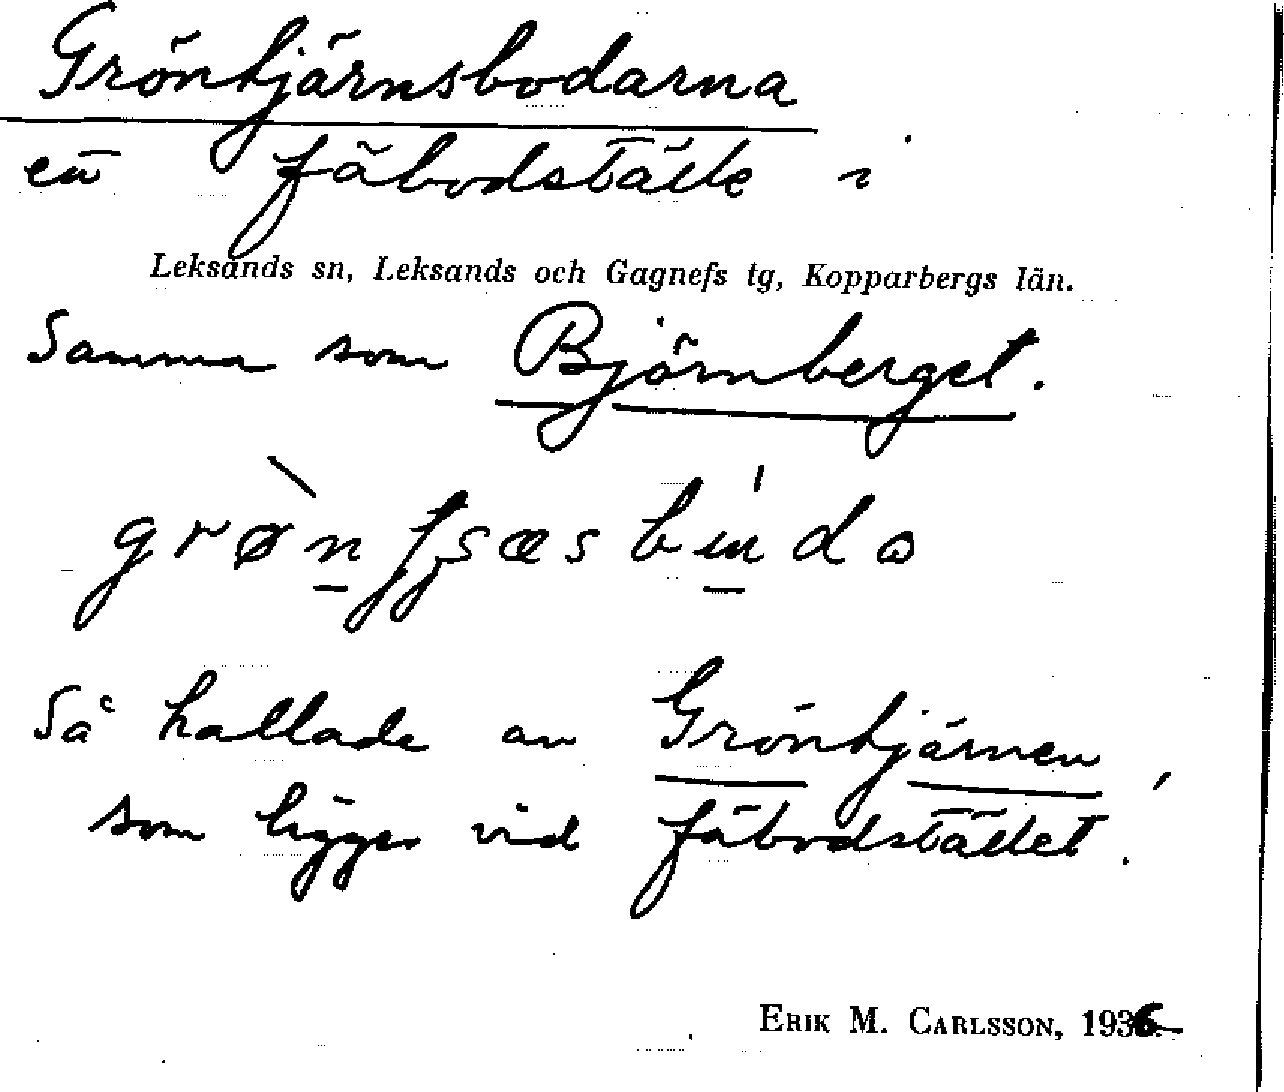 Gröntjärnsbodarna
ett fäbodställe i
Leksands sn, Leksands och Gagnefs tg, Kopparbergs län.
Samma som Björnberget.
Så kallade av Gröntjärnen,
som ligger vid fäbodstället.
ERIK M. CARLSSON, 1936